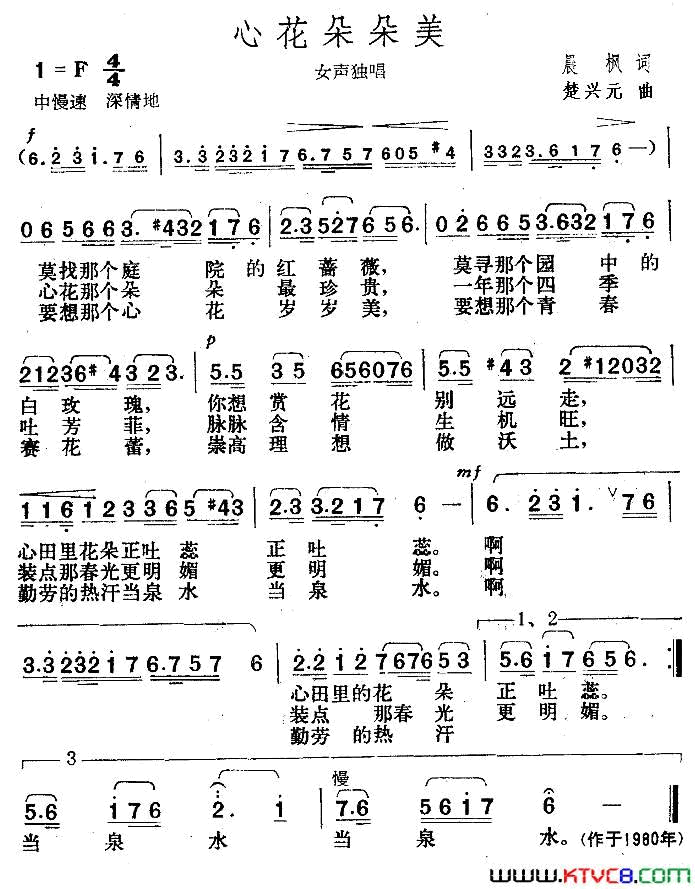 心花朵朵美
1=F 4/4
女声独唱
晨枫 词
中慢速 深情地
楚兴元 曲
f
(6. 2 3 1. 7 6 | 3. 3 2 3 2 1 7 6. 7 5 7 6 0 5 #4 | 3 3 2 3. 6 1 7 6 —) |
0 6 5 6 6 3. #4 3 2 1 7 6 | 2. 3 5 2 7 6 5 6. | 0 2 6 6 5 3. 6 3 2 1 7 6 |
莫找那个庭 院的红蔷薇, 莫寻那个园 中的
心花那个朵 朵 最珍贵, 一年那个四 季
要想那个心 花 岁岁美, 要想那个青 春
p
2 1 2 3 6 #4 3 2 3. | 5. 5 3 5 6 5 6 0 7 6 | 5. 5 #4 3 2 #1 2 0 3 2 |
白玫瑰, 你想赏花 别远走,
吐芳菲, 脉脉含情 生机旺,
赛花蕾, 崇高理想 做沃土,
mf
1 1 6 1 2 3 3 6 5 #4 3 | 2. 3 3. 2 1 7 6 — | 6. 2 3 1. ∨ 7 6 |
心田里花朵正吐蕊 正吐蕊。啊
装点那春光更明媚 更明媚。啊
勤劳的热汗当泉水 当泉水。啊
1、2
3. 3 2 3 2 1 7 6. 7 5 7 6 | 2. 2 1 2 7 6 7 6 5 3 | 5. 6 1 7 6 5 6. :|
心田里的花朵 正吐蕊。
装点那春光 更明媚。
勤劳的热汗
3
慢
5. 6 1 7 6 2. 1 | 7. 6 5 6 1 7 6 — ‖
当泉水 当泉水。(作于1980年)
www.KTVC8.com